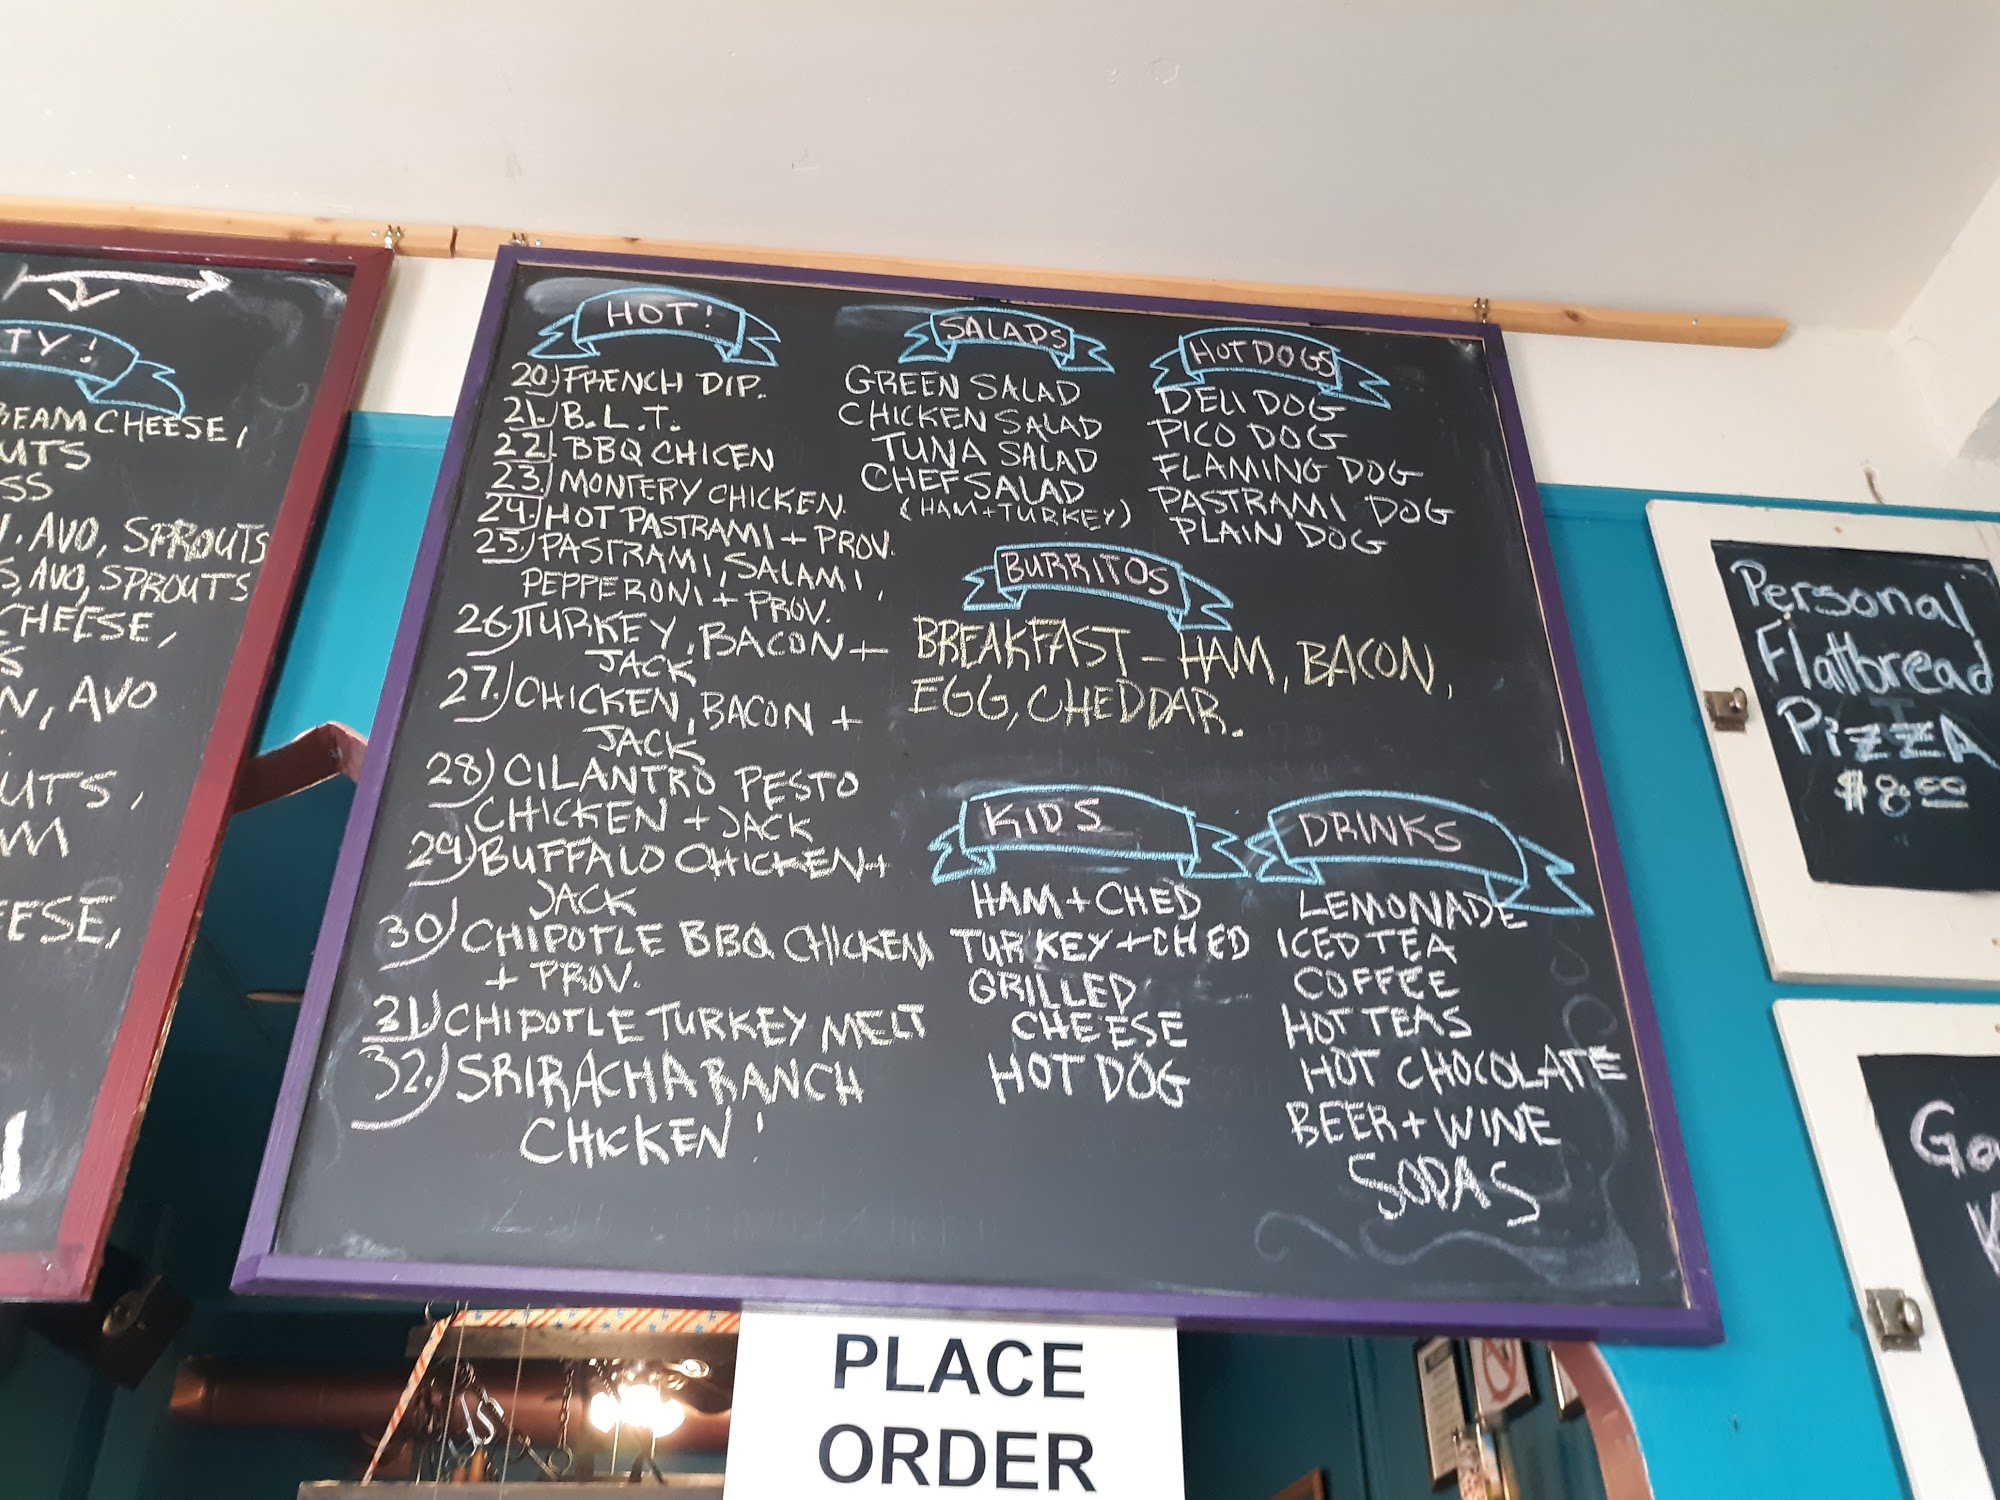 TY!
EAM CHEESE,
UTS
SS
. AVO, SPROUTS
S, AVO, SPROUTS
CHEESE,
S
N, AVO
UTS,
AM
EESE,
HOT!
20.) FRENCH DIP.
21.) B.L.T.
22.) BBQ CHICEN
23.) MONTERY CHICKEN.
24.) HOT PASTRAMI + PROV.
25.) PASTRAMI, SALAMI,
PEPPERONI + PROV.
26.) TURKEY, BACON +
JACK
27.) CHICKEN, BACON +
JACK
28.) CILANTRO PESTO
CHICKEN + JACK
29.) BUFFALO CHICKEN +
JACK
30.) CHIPOTLE BBQ CHICKEN
+ PROV.
31.) CHIPOTLE TURKEY MELT
32.) SRIRACHA RANCH
CHICKEN!
SALADS
GREEN SALAD
CHICKEN SALAD
TUNA SALAD
CHEF SALAD
(HAM + TURKEY)
HOT DOGS
DELI DOG
PICO DOG
FLAMING DOG
PASTRAMI DOG
PLAIN DOG
BURRITOS
BREAKFAST - HAM, BACON,
EGG, CHEDDAR.
KIDS
HAM + CHED
TURKEY + CHED
GRILLED
CHEESE
HOT DOG
DRINKS
LEMONADE
ICED TEA
COFFEE
HOT TEAS
HOT CHOCOLATE
BEER + WINE
SODAS
Personal
Flatbread
PizzA
$8.00
Ga
K
PLACE
ORDER